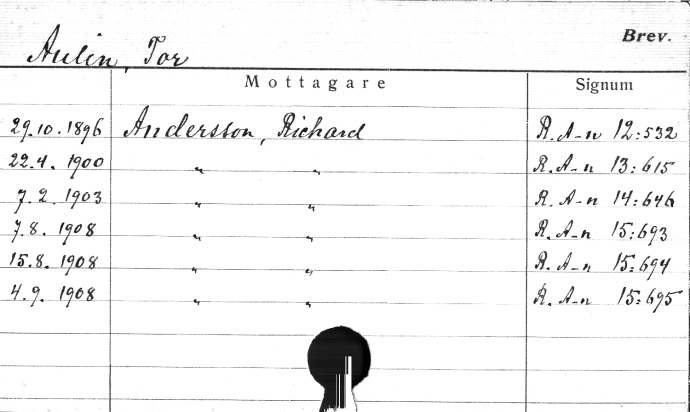 Brev.
Aulin, Tor
Mottagare Signum
29.10.1896 Andersson, Richard R. A-n 12:532
22.4. 1900 " " R. A-n 13:615
7.2. 1903 " " R. A-n 14:646
7.8. 1908 " " R. A-n 15:693
15.8. 1908 " " R. A-n 15:694
4.9. 1908 " " R. A-n 15:695